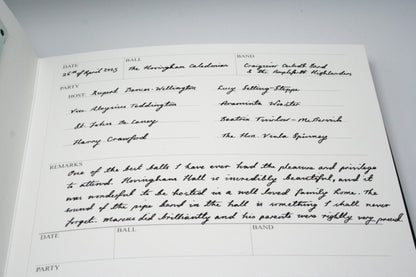 DATE BALL BAND
26th of April 2025 The Hovingham Caledonian Craigievar Ceilidh Band
& the Amplifyd Highlanders
PARTY
HOST Rupert Davies-Wellington Lucy Selling-Steppe
Vice Aloysius Teddington Araminta Wooster
St. John De Lancy Beatrix Twislow-McDervish
Harry Crawford The Hon. Viola Spinney
REMARKS
One of the best balls I have ever had the pleasure and privilege
to attend. Hovingham Hall is incredibly beautiful, and it
was wonderful to be hosted in a well loved family home. The
sound of the pipe band in the hall is something I shall never
forget. Marcus did brilliantly and his parents were rightly very proud.
DATE BALL BAND
PARTY